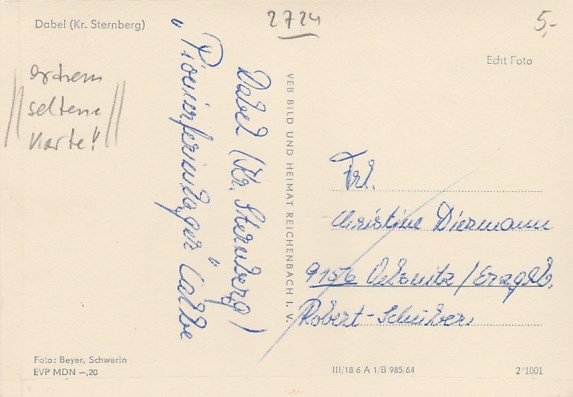 Dabel (Kr. Sternberg)
2724
5,-
Echt Foto
extrem
seltene
Karte!
Dabel (Kr. Sternberg)
"Pionierferienlager"
VEB BILD UND HEIMAT REICHENBACH I. V.
Frl.
Christine Diermann
9156 Oelsnitz/Erzgeb.
Robert-Schu
Foto: Beyer, Schwerin
EVP MDN –,20
III/18/6 A 1/B 985/64
2/1001